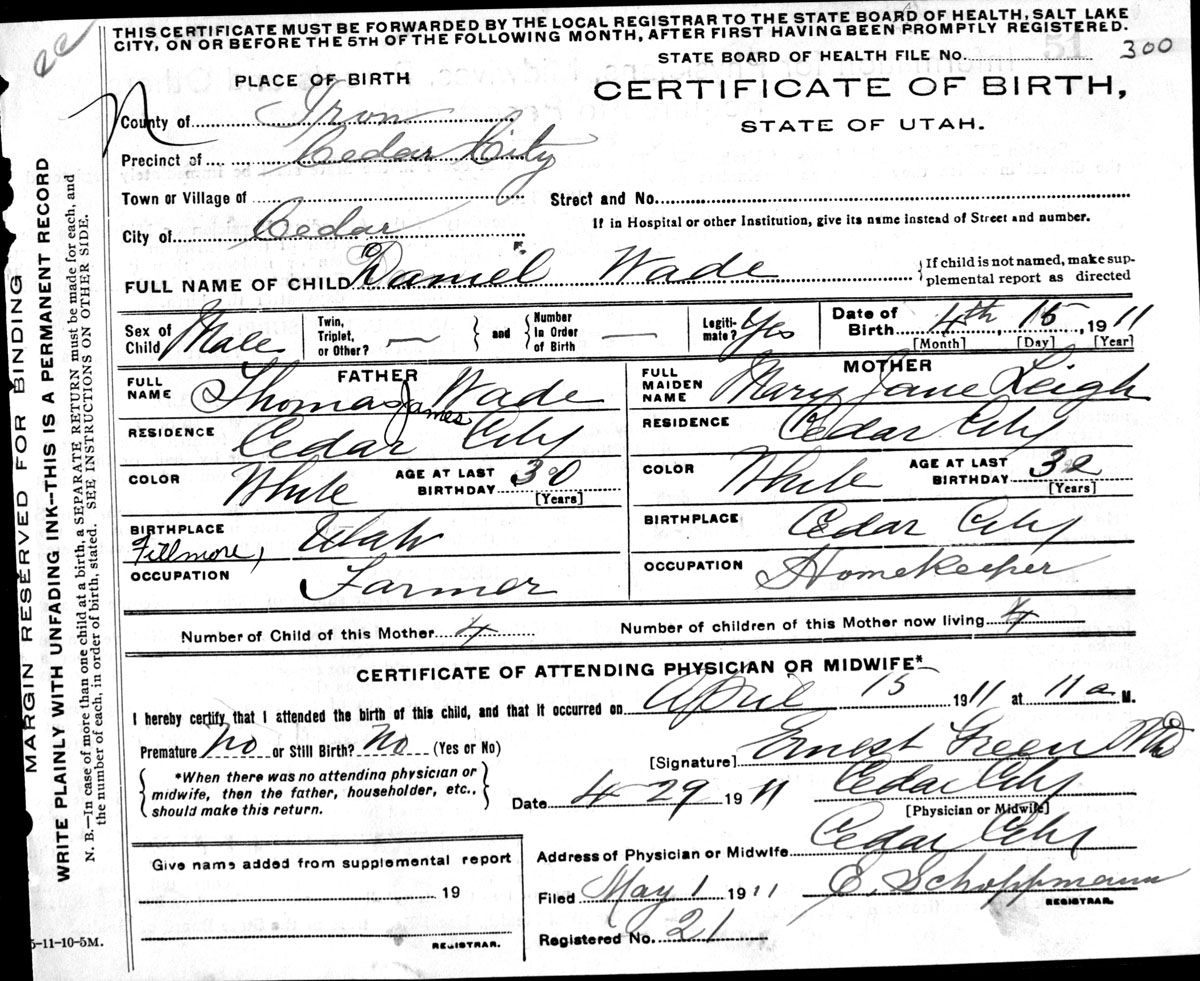 THIS CERTIFICATE MUST BE FORWARDED BY THE LOCAL REGISTRAR TO THE STATE BOARD OF HEALTH, SALT LAKE
CITY, ON OR BEFORE THE 5TH OF THE FOLLOWING MONTH, AFTER FIRST HAVING BEEN PROMPTLY REGISTERED.
STATE BOARD OF HEALTH FILE No. 300
PLACE OF BIRTH
CERTIFICATE OF BIRTH,
STATE OF UTAH.
County of Iron
Precinct of Cedar City
Town or Village of
Street and No.
City of Cedar
If in Hospital or other Institution, give its name instead of Street and number.
FULL NAME OF CHILD Daniel Wade
{If child is not named, make sup-
plemental report as directed
Sex of Child Male
Twin, Triplet, or Other? — and Number In Order of Birth —
Legiti-mate? Yes
Date of Birth 4th, 15, 1911
[Month] [Day] [Year]
FATHER
FULL NAME Thomas James Wade
RESIDENCE Cedar City
COLOR White
AGE AT LAST BIRTHDAY 30
[Years]
BIRTHPLACE Fillmore, Utah
OCCUPATION Farmer
MOTHER
FULL MAIDEN NAME Mary Jane Leigh
RESIDENCE Cedar City
COLOR White
AGE AT LAST BIRTHDAY 32
[Years]
BIRTHPLACE Cedar City
OCCUPATION Homekeeper
Number of Child of this Mother 4
Number of children of this Mother now living 4
CERTIFICATE OF ATTENDING PHYSICIAN OR MIDWIFE*
I hereby certify that I attended the birth of this child, and that it occurred on April 15 1911 at 11 a M.
Premature No or Still Birth? No (Yes or No)
[Signature] Ernest Green MD
*When there was no attending physician or
midwife, then the father, householder, etc.,
should make this return.
Date 4 29 1911 Cedar City
[Physician or Midwife]
Address of Physician or Midwife Cedar City
Give name added from supplemental report
19
REGISTRAR.
Filed May 1 1911 E. Schoppmann
REGISTRAR.
Registered No. 21
5-11-10-5M.
MARGIN RESERVED FOR BINDING
WRITE PLAINLY WITH UNFADING INK--THIS IS A PERMANENT RECORD
N. B.—In case of more than one child at a birth, a SEPARATE RETURN must be made for each, and
the number of each, in order of birth, stated. SEE INSTRUCTIONS ON OTHER SIDE.